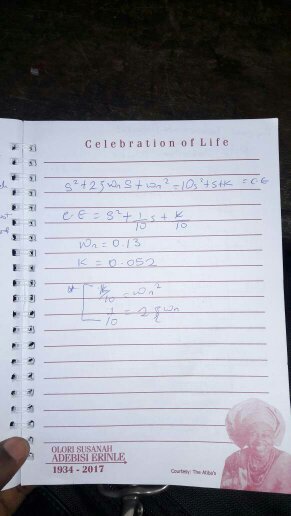 Celebration of Life
s² + 2ζωn s + ωn² = 10s² + s + k = C.E
C.E = s² + 1/10 s + k/10
ωn = 0.13
k = 0.052
* k/10 = ωn²
1/10 = 2ζωn
OLORI SUSANAH
ADEBISI ERINLE
1934 - 2017
Courtesy: The Atiba's